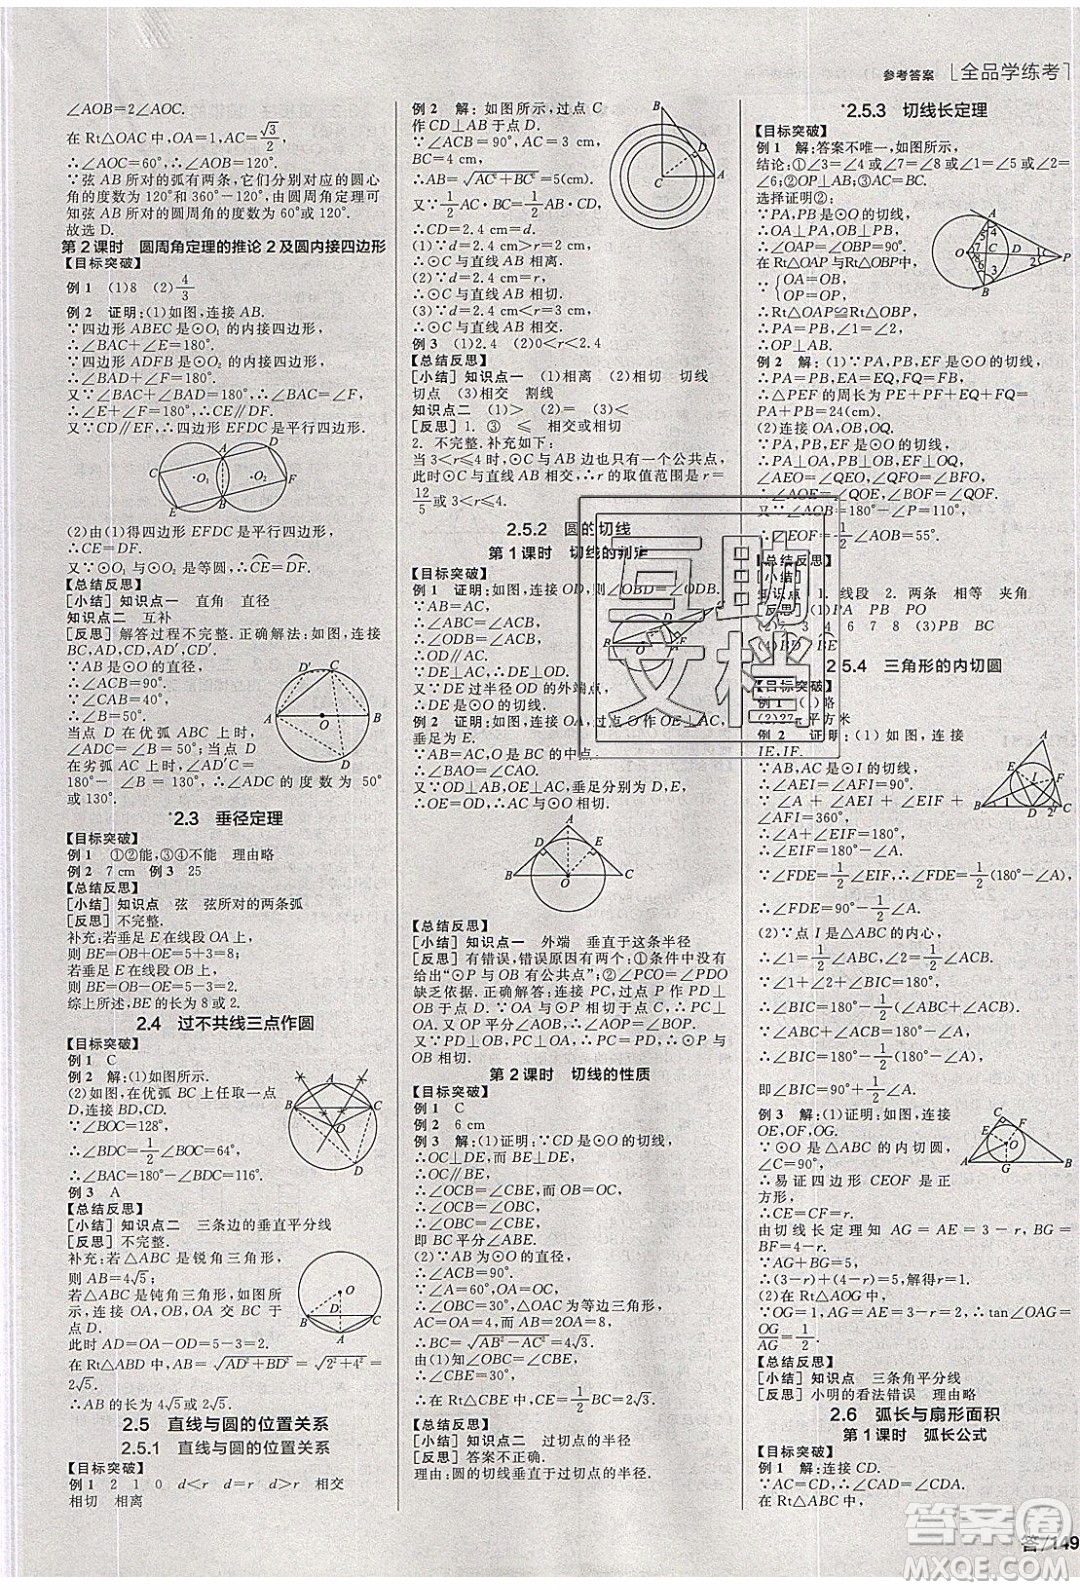 参考答案 [全品学练考]
∠AOB=2∠AOC.
在 Rt△OAC 中，OA=1，AC=√3/2，
∴∠AOC=60°，∴∠AOB=120°.
∵弦 AB 所对的弧有两条，它们分别对应的圆心
角的度数为 120°和 360°-120°，由圆周角定理可
知弦 AB 所对的圆周角的度数为 60°或 120°.
故选 D.
第 2 课时 圆周角定理的推论 2 及圆内接四边形
【目标突破】
例 1 (1)8 (2)4/3
例 2 证明：(1)如图，连接 AB.
∵四边形 ABEC 是⊙O₁ 的内接四边形，
∴∠BAC+∠E=180°.
∵四边形 ADFB 是⊙O₂ 的内接四边形，
∴∠BAD+∠F=180°.
又∵∠BAC+∠BAD=180°，
∴∠E+∠F=180°，∴CE∥DF.
又∵CD∥EF，∴四边形 EFDC 是平行四边形.
(2)由(1)得四边形 EFDC 是平行四边形，
∴CE=DF.
又∵⊙O₁ 与⊙O₂ 是等圆，∴CE=DF.
【总结反思】
[小结] 知识点一 直角 直径
知识点二 互补
[反思] 解答过程不完整.正确解法：如图，连接
BC，AD，CD，AD′，CD′.
∵AB 是⊙O 的直径，
∴∠ACB=90°.
∵∠BAC=40°，
∴∠B=50°.
当点 D 在优弧 AC 上时，
∠ADC=∠B=50°；当点 D
在劣弧 AC 上时，∠ADC=
180°-∠B=130°，∴∠ADC 的度数为 50°
或 130°.
*2.3 垂径定理
【目标突破】
例 1 ①②能，③④不能 理由略
例 2 7 cm 例 3 25
【总结反思】
[小结] 知识点 弦 弦所对的两条弧
[反思] 不完整.
补充：若垂足 E 在线段 OA 上，
则 BE=OB+OE=5+3=8；
若垂足 E 在线段 OB 上，
则 BE=OB-OE=5-3=2.
综上所述，BE 的长为 8 或 2.
2.4 过不共线三点作圆
【目标突破】
例 1 C
例 2 解：(1)如图所示.
(2)如图，在优弧 BC 上任取一点
D，连接 BD，CD.
∵∠BOC=128°，
∴∠BDC=1/2∠BOC=64°，
∴∠BAC=180°-∠BDC=116°.
例 3 A
【总结反思】
[小结] 知识点二 三条边的垂直平分线
[反思] 不完整.
补充：若△ABC 是锐角三角形，
则 AB=4√5；
若△ABC 是钝角三角形，如图所
示，连接 OA，OB，OA 交 BC 于
点 D.
此时 AD=OA-OD=5-3=2.
在 Rt△ABD 中，AB=√AD²+BD²=√2²+4²=
2√5，
∴AB 的长为 4√5 或 2√5.
2.5 直线与圆的位置关系
2.5.1 直线与圆的位置关系
【目标突破】
例 1 2 1 0 d<r d=r d>r 相交
相切 相离
例 2 解：如图所示，过点 C
作 CD⊥AB 于点 D.
∵∠ACB=90°，AC=3 cm，
BC=4 cm，
∴AB=√AC²+BC²=5(cm).
又∵1/2AB·CD=1/2AC·BC，
∴CD=2.4 cm.
(1)∵d=2.4 cm，r=2 cm，∴d>r，
∴⊙C 与直线 AB 相离.
(2)∵d=2.4 cm，r=2.4 cm，∴d=r，
∴⊙C 与直线 AB 相切.
(3)∵d=2.4 cm，r=3 cm，∴d<r，
∴⊙C 与直线 AB 相交.
例 3 (1)2.4 (2)0<r<2.4
【总结反思】
[小结] 知识点一 (1)相离 (2)相切 切线
切点 (3)相交 割线
知识点二 (1)> (2)= (3)<
[反思] 1. ③ ≤ 相交或相切
2. 不完整.补充如下：
当 3<r≤4 时，⊙C 与 AB 边也只有一个公共点，
此时⊙C 与直线 AB 相交，∴r 的取值范围是 r=
12/5或 3<r≤4.
2.5.2 圆的切线
第 1 课时 切线的判定
【目标突破】
例 1 证明：如图，连接 OD，则∠OBD=∠ODB.
∵AB=AC，
∴∠ABC=∠ACB，
∴∠ODB=∠ACB，
∴OD∥AC.
又∵DE⊥AC，
∴DE⊥OD.
又∵DE 过半径 OD 的外端点，
∴DE 是⊙O 的切线.
例 2 证明：如图，连接 OA，过点 O 作 OE⊥AC，
垂足为 E.
∵AB=AC，O 是 BC 的中点，
∴∠BAO=∠CAO.
又∵AB 与⊙O 相切于点 D，
∴OE=OD，∴AC 是⊙O 的切线.
【总结反思】
[小结] 知识点一 外端 垂直于这条半径
[反思] 有错误，错误原因有两个：①条件中没有
给出“⊙P 与 OB 有公共点”；②∠PCO=∠PDO
缺乏依据.正确解答：连接 PC，过点 P 作 PD⊥
OB 于点 D.∵OA 与⊙P 相切于点 C，∴PC⊥OA.
又∵OP 平分∠AOB，PD⊥OB，∴PD=PC，∴⊙P
与 OB 相切.
第 2 课时 切线的性质
【目标突破】
例 1 C
例 2 6 cm
例 3 解：(1)证明：∵CD 是⊙O 的切线，
∴OC⊥DE.又∵BE⊥DE，
∴OC∥BE，
∴∠OCB=∠CBE，而 OB=OC，
∴∠OCB=∠OBC，∴∠OBC=∠CBE，
即 BC 平分∠ABE.
(2)∵AB 为⊙O 的直径，
∴∠ACB=90°.
∵∠A=60°，OA=OC，
∴△OAC 为等边三角形，
∴AC=OA=2，AB=2OA=4，
∴BC=√AB²-AC²=4√3.
由(1)知∠CBE=∠OBC=
30°，
∴在 Rt△CBE 中，CE=1/2BC=2√3.
【总结反思】
[小结] 知识点二 过切点的 垂直于
[反思] 答案不正确.
理由：圆的切线垂直于过切点的半径.
*2.5.3 切线长定理
【目标突破】
例 1 解：答案不唯一，如图所示，
结论：①∠3=∠4 或∠7=∠8 或∠1=∠5 或∠2
=∠6；②OP⊥AB；③AC=BC.
选择证明②：
∵PA，PB 是⊙O 的切线，
∴OA⊥PA，OB⊥PB，
∴∠OAP=∠OBP=90°.
在 Rt△OAP 与 Rt△OBP 中，
∵{OA=OB，
OP=OP，
∴Rt△OAP≌Rt△OBP，
∴PA=PB，∠1=∠2，∴OP⊥AB.
例 2 解：(1)∵PA，PB，EF 是⊙O 的切线，
∴PA=PB，EA=EQ，FQ=FB，
∴△PEF 的周长为 PE+PF+EQ+FQ=
PA+PB=24(cm).
(2)连接 OA，OB，OQ.
∵PA，PB，EF 是⊙O 的切线，
∴PA⊥OA，PB⊥OB，EF⊥OQ，
∠AEO=∠QEO，∠QFO=∠BFO，
∴∠AOE=∠QOE，∠QOF=∠BOF.
又∵∠AOB=180°-∠P=110°，
∴∠EOF=1/2∠AOB=55°.
【总结反思】
[小结]
知识点 1. 线段 2. 两条 相等 夹角
[反思] (1)PA PB PO
2.5.4 三角形的内切圆
【目标突破】
例 2 证明：(1)如图，连接
IE，IF.
∵AB，AC 是⊙I 的切线，
∴∠AEI=∠AFI=90°.
∵∠A+∠AEI+∠EIF+
∠AFI=360°，
∴∠A+∠EIF=180°.
∵∠FDE=1/2∠EIF，∴∠FDE=1/2(180°-∠A)，
∴∠FDE=90°-1/2∠A.
(2)∵点 I 是△ABC 的内心，
∴∠1=1/2∠ABC，∠2=1/2∠ACB.
∵∠1+∠2+∠BIC=180°，
∴∠BIC=180°-1/2(∠ABC+∠ACB).
∵∠A+∠ABC+∠ACB=180°，
∴∠BIC=180°-1/2(180°-∠A)，
即∠BIC=90°+1/2∠A.
例 3 解：(1)证明：如图，连接
OE，OF，OG.
∵⊙O 是△ABC 的内切圆，
∠C=90°，
∴易证四边形 CEOF 是正
方形，
∴CE=CF=r.
由切线长定理知 AG=AE=3-r，BG=BF=
4-r.
∵AG+BG=AB=5，
∴(3-r)+(4-r)=5，解得 r=1.
(2)在 Rt△AOG 中，
∵OG=1，AG=AE=3-r=2，∴tan∠OAG=
OG/AG=1/2.
【总结反思】
[反思] 小明的看法错误 理由略
2.6 弧长与扇形面积
第 1 课时 弧长公式
【目标突破】
例 1 解：连接 CD.
∵AC=CD，∴∠CAD=∠CDA.
在 Rt△ABC 中，
答/149
答案圈
MXQE.COM
互助文档